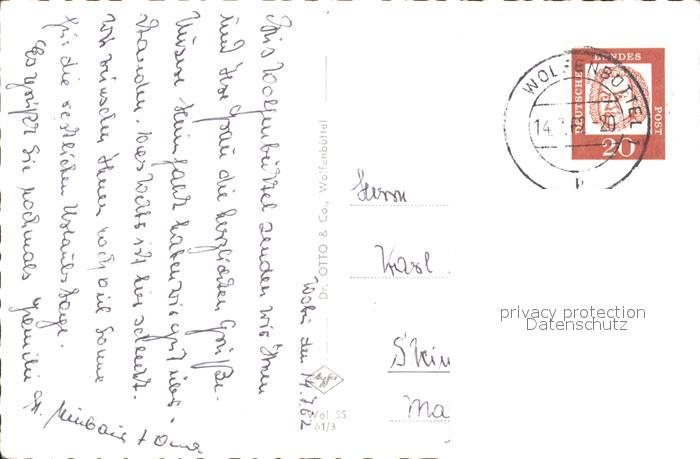 Wobü, den 14.7.62
Aus Wolfenbüttel senden wir Ihnen
und Ihrer Frau die herzlichsten Grüße.
Unsere Heimfahrt haben wir gut über-
standen. Das Wetter ist hier schlecht.
Wir wünschen Ihnen noch viel Sonne
für die restlichen Urlaubstage.
Es grüßt Sie nochmals
Dr. OTTO & Co., Wolfenbüttel
Wol SS
61/3
Herrn
Karl
Stein
Ma
DEUTSCHE BUNDES POST
20
WOLFENBÜTTEL
14.7.62-20
b
privacy protection
Datenschutz